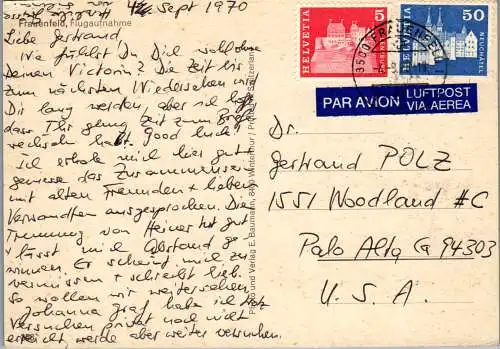 4. Sept 1970
Frauenfeld, Flugaufnahme
Liebe Gertrand,
Wie fühlst Du Dich wohl ohne
Deinen Victor? Die Zeit bis
zum nächsten Wiedersehen wird
Dir lang werden, aber ich
dass Ihr genug Zeit zum
wechseln habt. Good luck!
Ich erhole mich hier gut
geniesse das Zusammensein
mit alten Freunden + lieben
Verwandten ausgesprochen. Die
Trennung von Heiner tut gut
+ lässt mich Abstand ge-
winnen. Er scheint mich zu
vermissen + schreibt lieb.
So wollen wir weitersehen.
Johanna Graf habe ich trotz
Versuchen privat noch nicht
erreicht werde aber weiter versuchen.
Photo und Verlag E. Baumann, 8400 Winterthur / Printed in Switzerland
HELVETIA
5
50
HELVETIA
NEUCHÂTEL
8500 FRAUENFELD
PAR AVION
LUFTPOST
VIA AEREA
Dr.
Gertrand POLZ
1551 Woodland #C
Palo Alto Ca 94303
U. S. A.